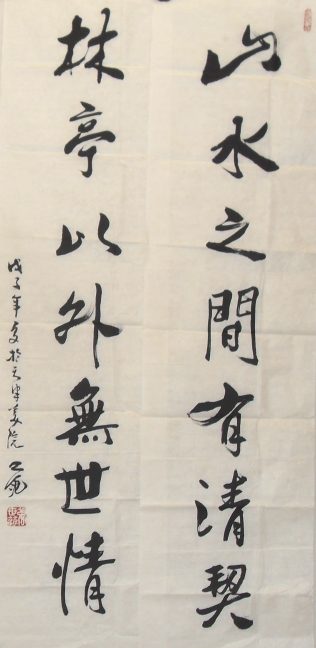 山水之間有清契
林亭以外無世情
戊子年夏於天津美院